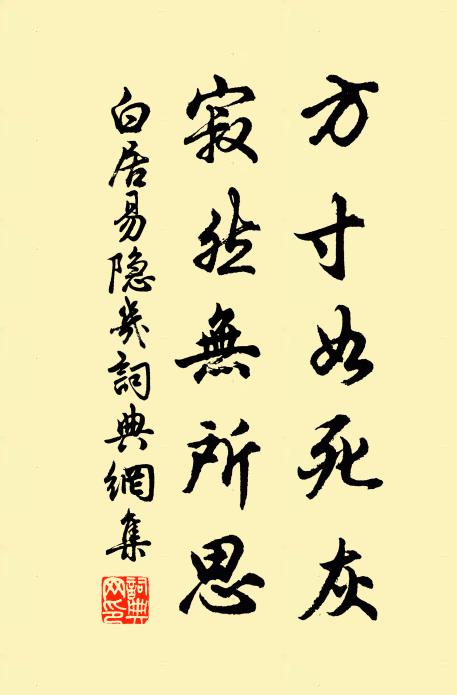 方寸如死灰
寂然無所思
白居易隐几詞典網集
詞典网印